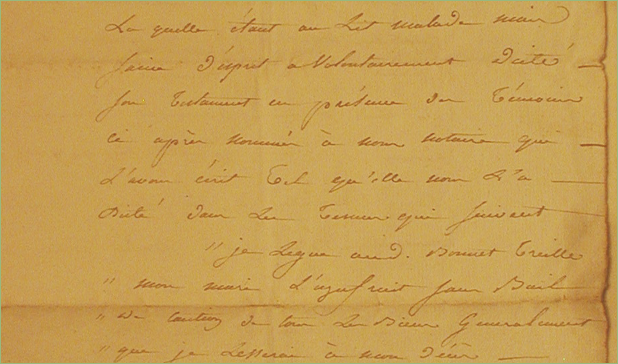 La quelle étant au Lit malade mais
saine d'esprit a Volontairement dicté
son Testament en présence des Témoins
ci après nommés à nous notaire qui
L'avons écrit Tel qu'elle nous L'a
Dicté dans Les Termes qui suivent
" je Lègue aud. Bonnet Treille
" mon mari L'uzufruit sans Bail
" de Caution de tous Les Biens Généralement
" que je Lesserai à mon décès